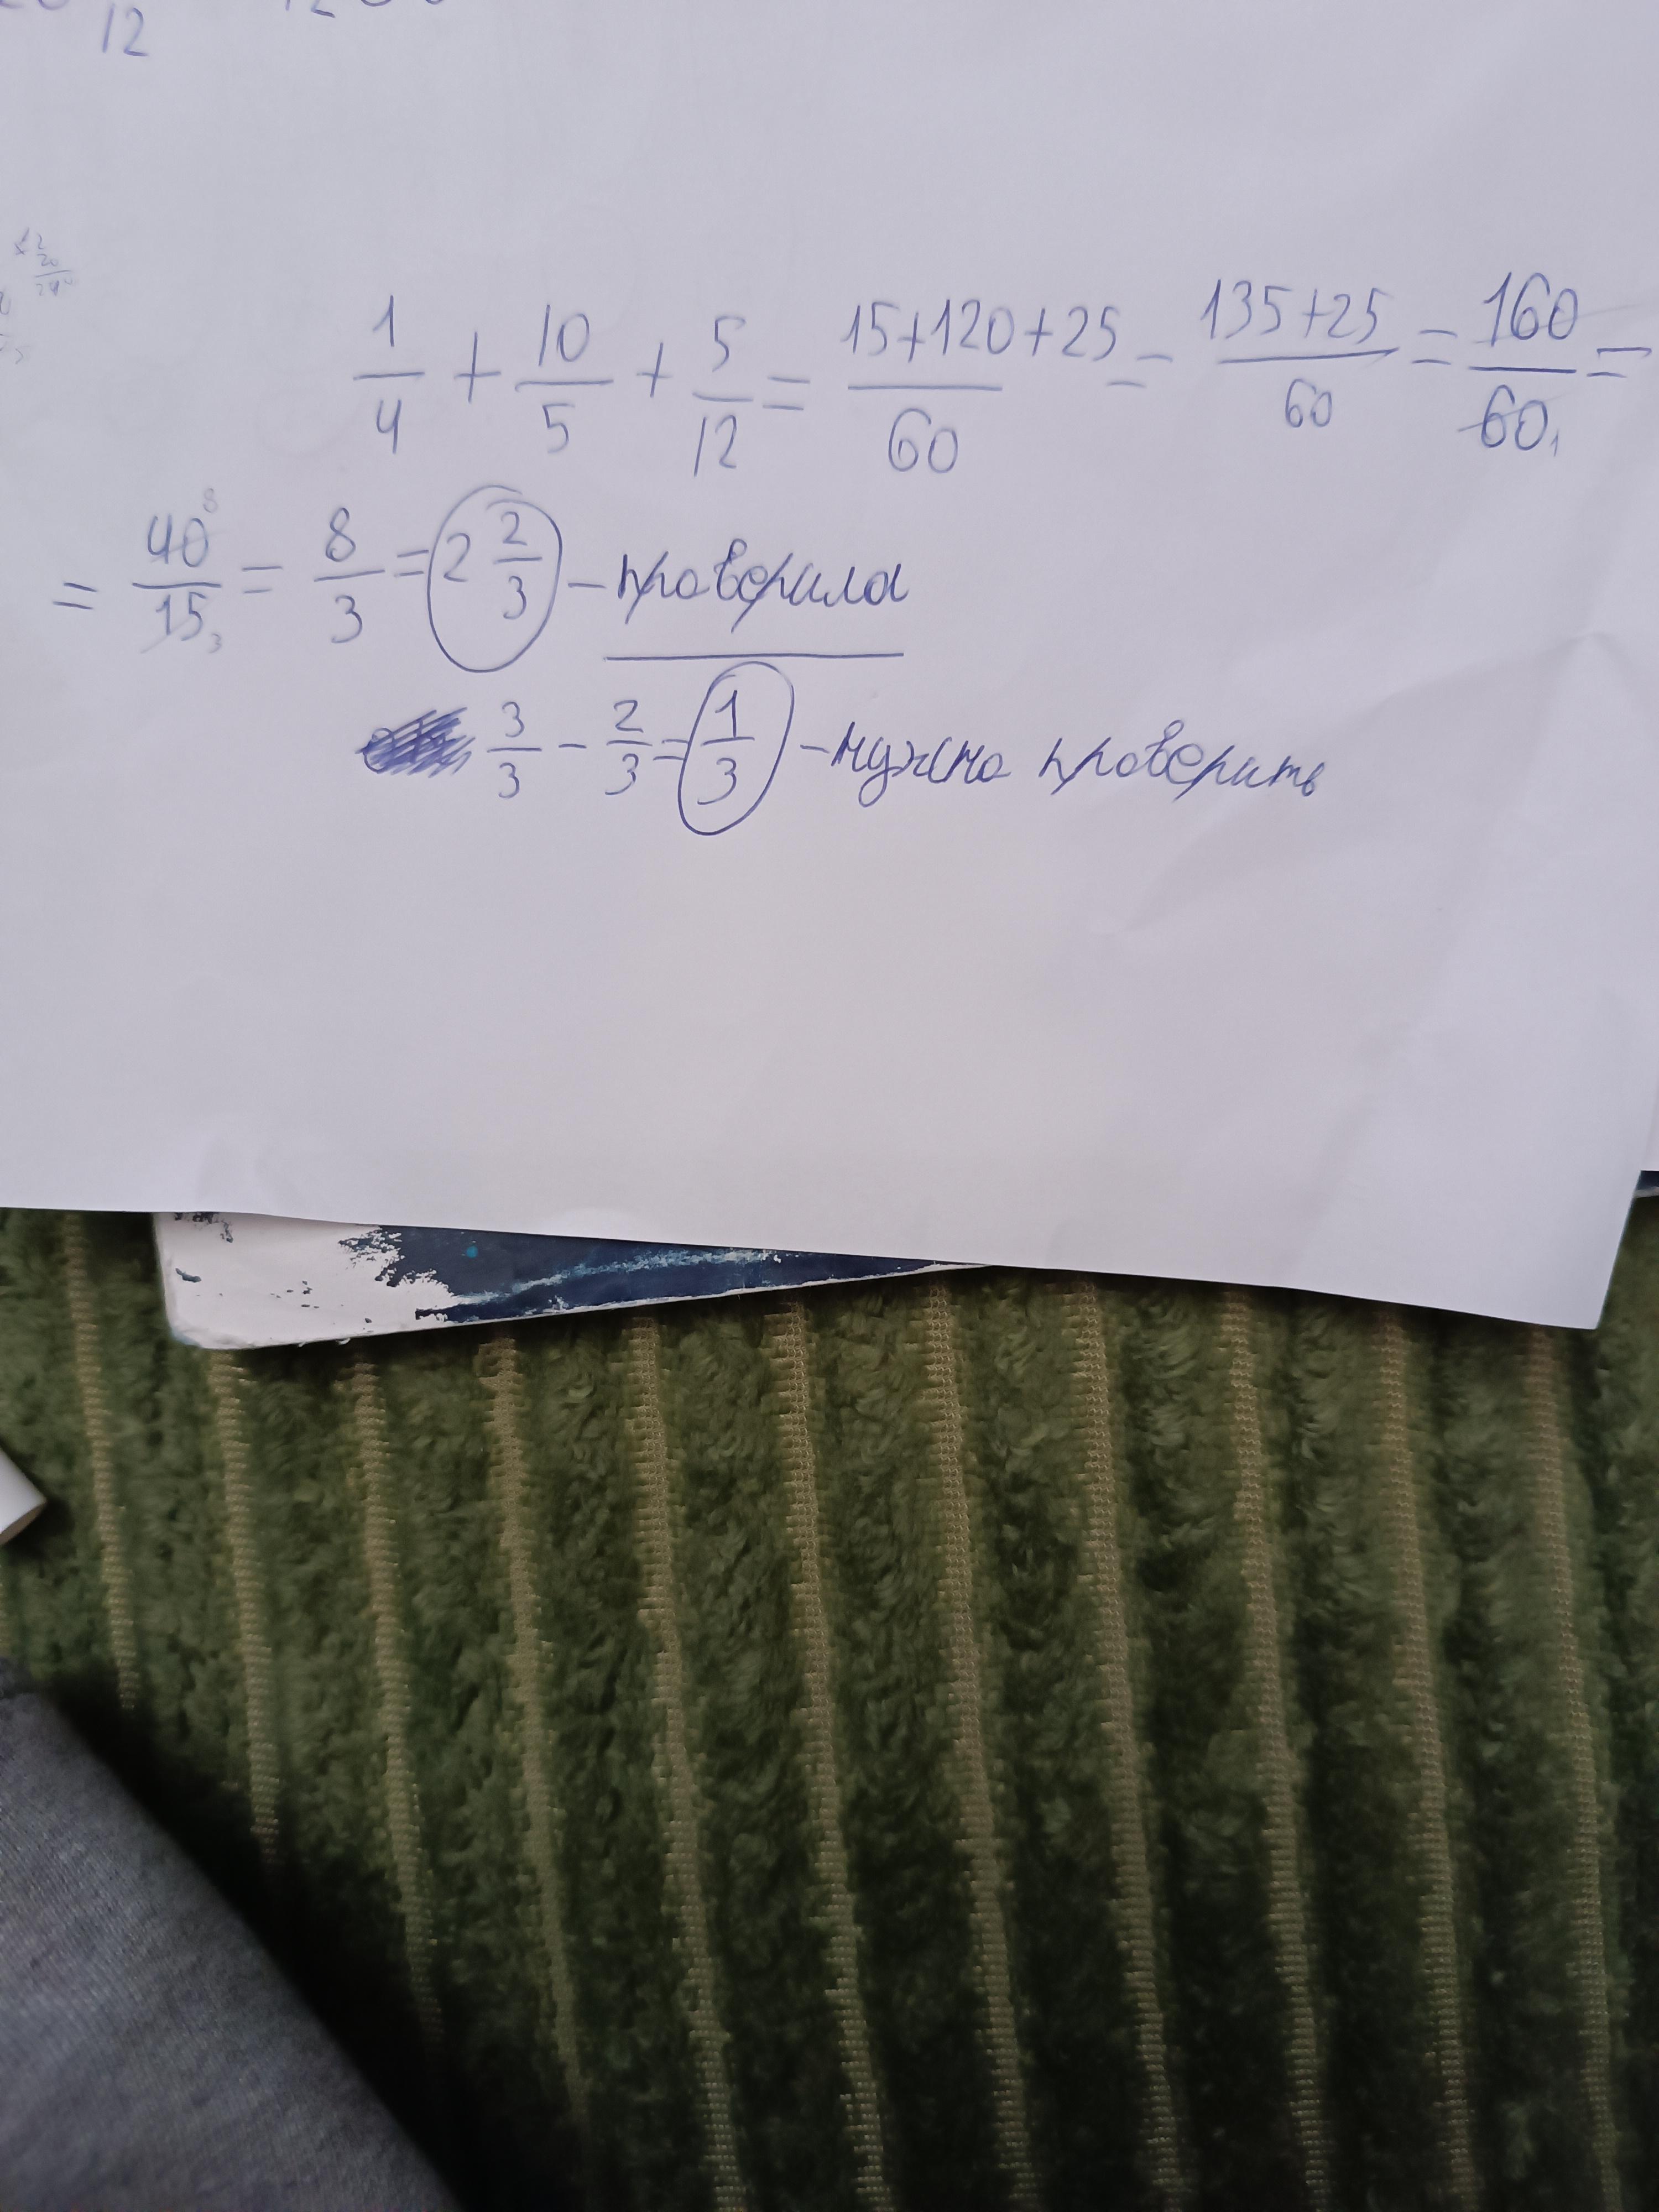 12
1/4 + 10/5 + 5/12 = (15+120+25)/60 = (135+25)/60 = 160/60 =
= 40/15 = 8/3 = 2 2/3 – проверила
3/3 – 2/3 = 1/3 – нужно проверить